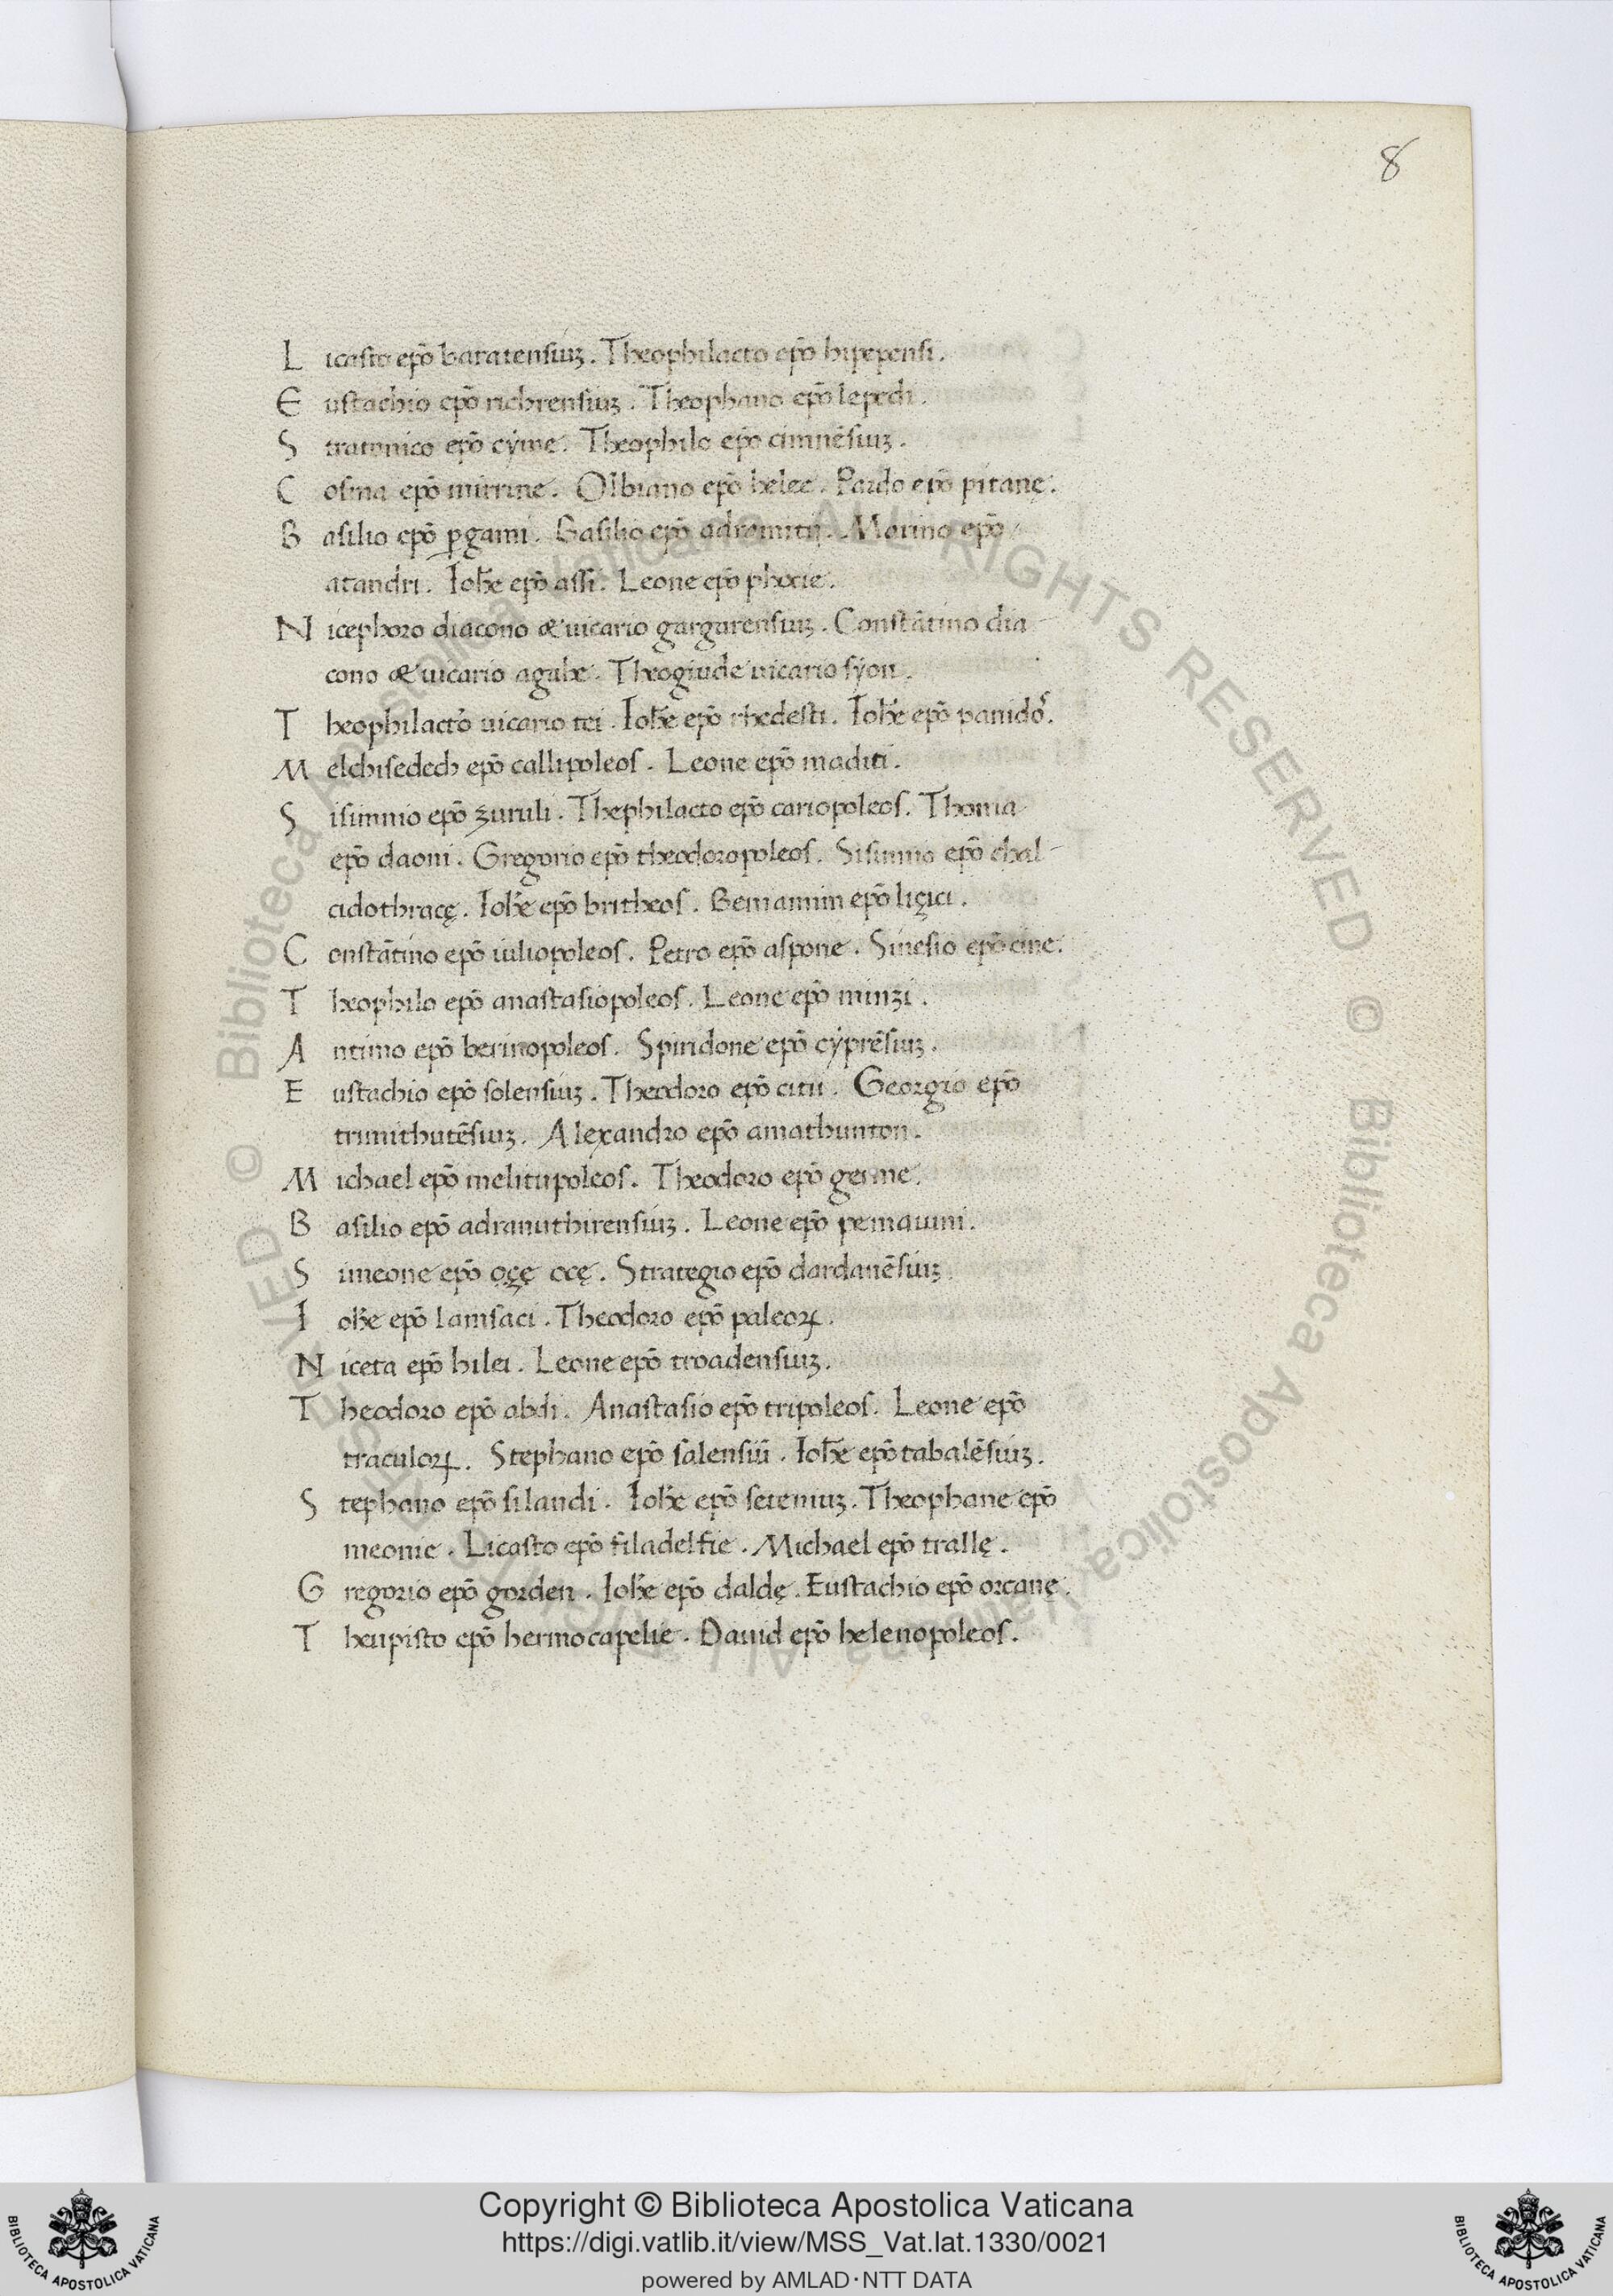 8
Licasto ep̄o baratensiuʒ. Theophilacto ep̄o hipepensi.
Eustachio ep̄o richrensiuʒ. Theophano ep̄o lepedi.
Stratonico ep̄o cẏme. Theophilo ep̄o cimnēsiuʒ.
Cosma ep̄o mirrine. Olbiano ep̄o helee. Pardo ep̄o pitanę.
Basilio ep̄o ꝑgami. Basilio ep̄o adramitij. Marino ep̄o
atandri. Ioh̄e ep̄o assi. Leone ep̄o phocie.
Nicephoro diacono & uicario gargarensiuʒ. Constātino dia-
cono & uicario agahe. Theogiude uicario sẏon.
Theophilacto uicario tei. Ioh̄e ep̄o rhedesti. Ioh̄e ep̄o panidoꝰ.
Melchisedech ep̄o callipoleos. Leone ep̄o maditi.
Sisinnio ep̄o zuruli. Thephilacto ep̄o cariopoleos. Thoma
ep̄o daoni. Gregorio ep̄o theodoropoleos. Sisinnio ep̄o chal-
cidothracę. Ioh̄e ep̄o britheos. Beniamin ep̄o liçici.
Constātino ep̄o iuliopoleos. Petro ep̄o aspone. Sinesio ep̄o cine.
Theophilo ep̄o anastasiopoleos. Leone ep̄o minzi.
Antimo ep̄o berinopoleos. Spiridone ep̄o cẏprēsiuʒ.
Eustachio ep̄o solensiuʒ. Theodoro ep̄o citii. Georgio ep̄o
trimithutēsiuʒ. Alexandro ep̄o amathunton.
Michael ep̄o melitupoleos. Theodoro ep̄o germe.
Basilio ep̄o adranuthirensiuʒ. Leone ep̄o pemauini.
Simeone ep̄o oçę ocę. Strategio ep̄o dardanēsiuʒ
Ioh̄e ep̄o lamsaci. Theodoro ep̄o paleoꝝ.
Niceta ep̄o hilei. Leone ep̄o troadensiuʒ.
Theodoro ep̄o abdi. Anastasio ep̄o tripoleos. Leone ep̄o
traculoꝝ. Stephano ep̄o salensiū. Ioh̄e ep̄o tabalēsiuʒ.
Stephano ep̄o silandi. Ioh̄e ep̄o seteniuʒ. Theophane ep̄o
meonie. Licasto ep̄o filadelfie. Michael ep̄o trallę.
Gregorio ep̄o gorden. Ioh̄e ep̄o daldę. Eustachio ep̄o orcanę.
Theupisto ep̄o hermocapelie. Dauid ep̄o helenopoleos.
Copyright © Biblioteca Apostolica Vaticana
https://digi.vatlib.it/view/MSS_Vat.lat.1330/0021
powered by AMLAD·NTT DATA
BIBLIOTECA APOSTOLICA VATICANA
BIBLIOTECA APOSTOLICA VATICANA
© Biblioteca Apostolica Vaticana ALL RIGHTS RESERVED © Biblioteca Apostolica Vaticana ALL RIGHTS RESERVED